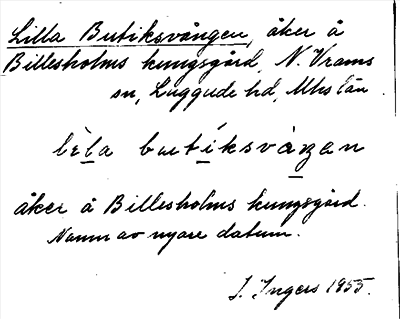 Lilla Butiksvången, åker å
Billesholms kungsgård, N. Vrams
sn, Luggude hd, Mhs län.
lìla butíksvàŋen
åker å Billesholms kungsgård.
Namn av nyare datum.
I. Ingers 1955.